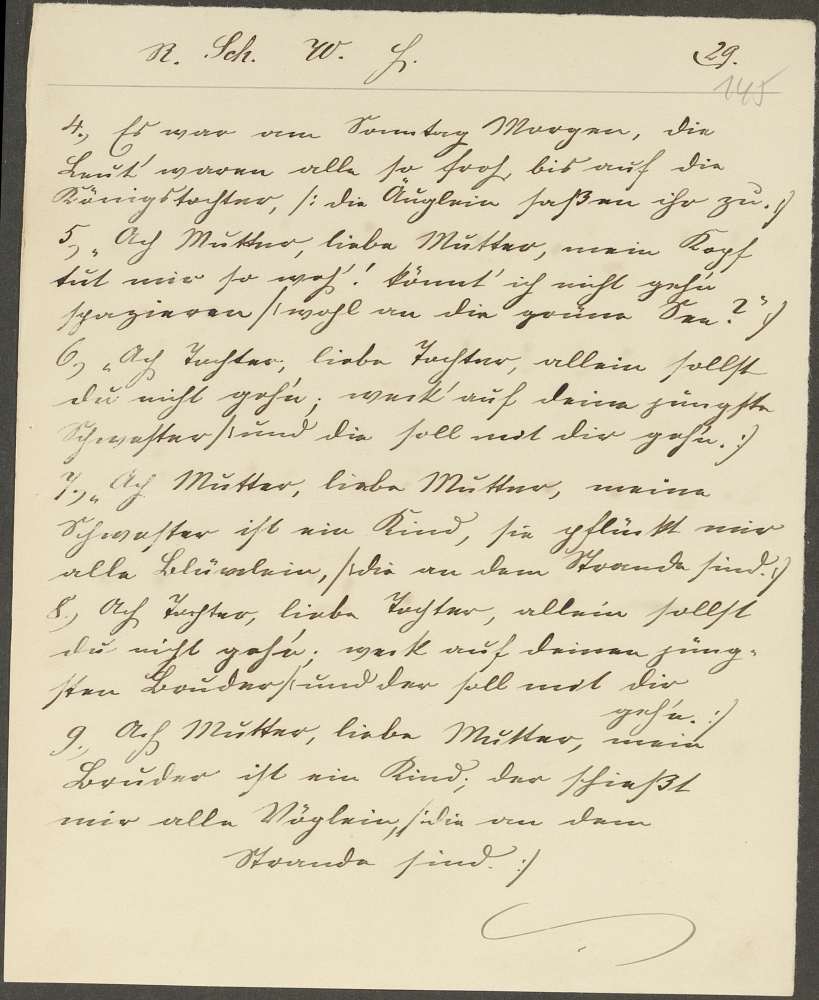 R. Sch. W. H. 29.
145
4., Es war am Sonntag Morgen, die
Leut' waren alle so froh, bis auf die
Königstochter, /: die Äuglein saßen ihr zu. :/
5., „Ach Mutter, liebe Mutter, mein Kopf
tut mir so weh'! könnt' ich nicht geh'n
spazieren /: wohl an die grüne See?“ :/
6., „Ach Tochter, liebe Tochter, allein sollst
du nicht geh'n; weck' auf deine jüngste
Schwester /: und die soll mit dir geh'n. :/
7., „Ach Mutter, liebe Mutter, meine
Schwester ist ein Kind, sie pflückt mir
alle Blümlein, /: die an dem Strande sind. :/
8., Ach Tochter, liebe Tochter, allein sollst
du nicht geh'n; weck auf deinen jüng-
sten Bruder /: und der soll mit dir
geh'n. :/
9., Ach Mutter, liebe Mutter, mein
Bruder ist ein Kind; der schießt
mir alle Vöglein, /: die an dem
Strande sind. :/